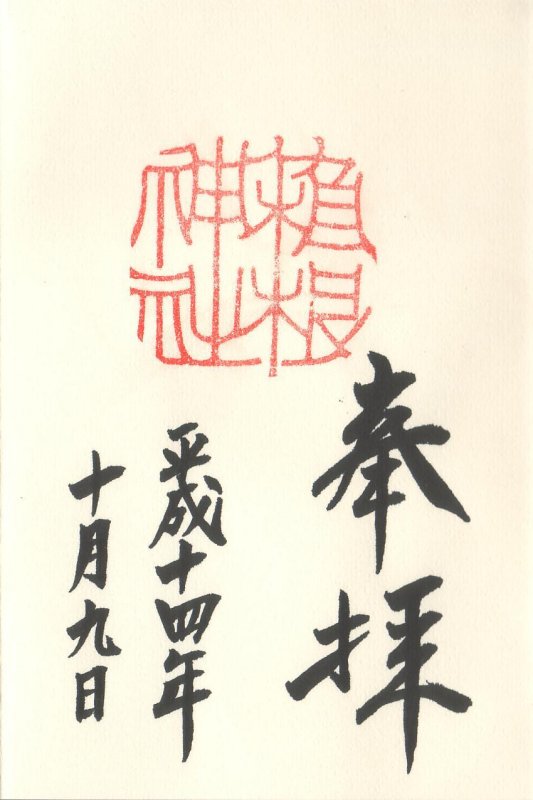 植根
神社
奉拝
平成十四年
十月九日